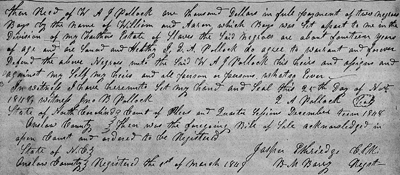 then Recd of W A J Pollock one thousand Dollars in full payment of two negroes
Boys by the name of William and Aaron which Boys was Set apart to me in the
Division of my Fathers Estate of Slaves the Said negroes are about fourteen years
of age and are Sound and Healthy I E. A. Pollock do agree to warrant and forever
Defend the above Negroes unto the Said W A J Pollock his heirs and assigns and
against my Self my heirs and all person or persons whatso Ever
In witness I have hereunto Set my hand and Seal this 20th day of Nov
1848 witness Jno B Pollock E A Pollock Seal
State of North Carolina Court of Pleas and Quarter Sessions December Term 1848
Onslow County Then was the foregoing Bill of Sale acknowledged in
open Court and ordered to be Registered
Jasper Etheridge Clk.
State of N.C.
Onslow County Registered the 1st of march 1849 B. M. Regst